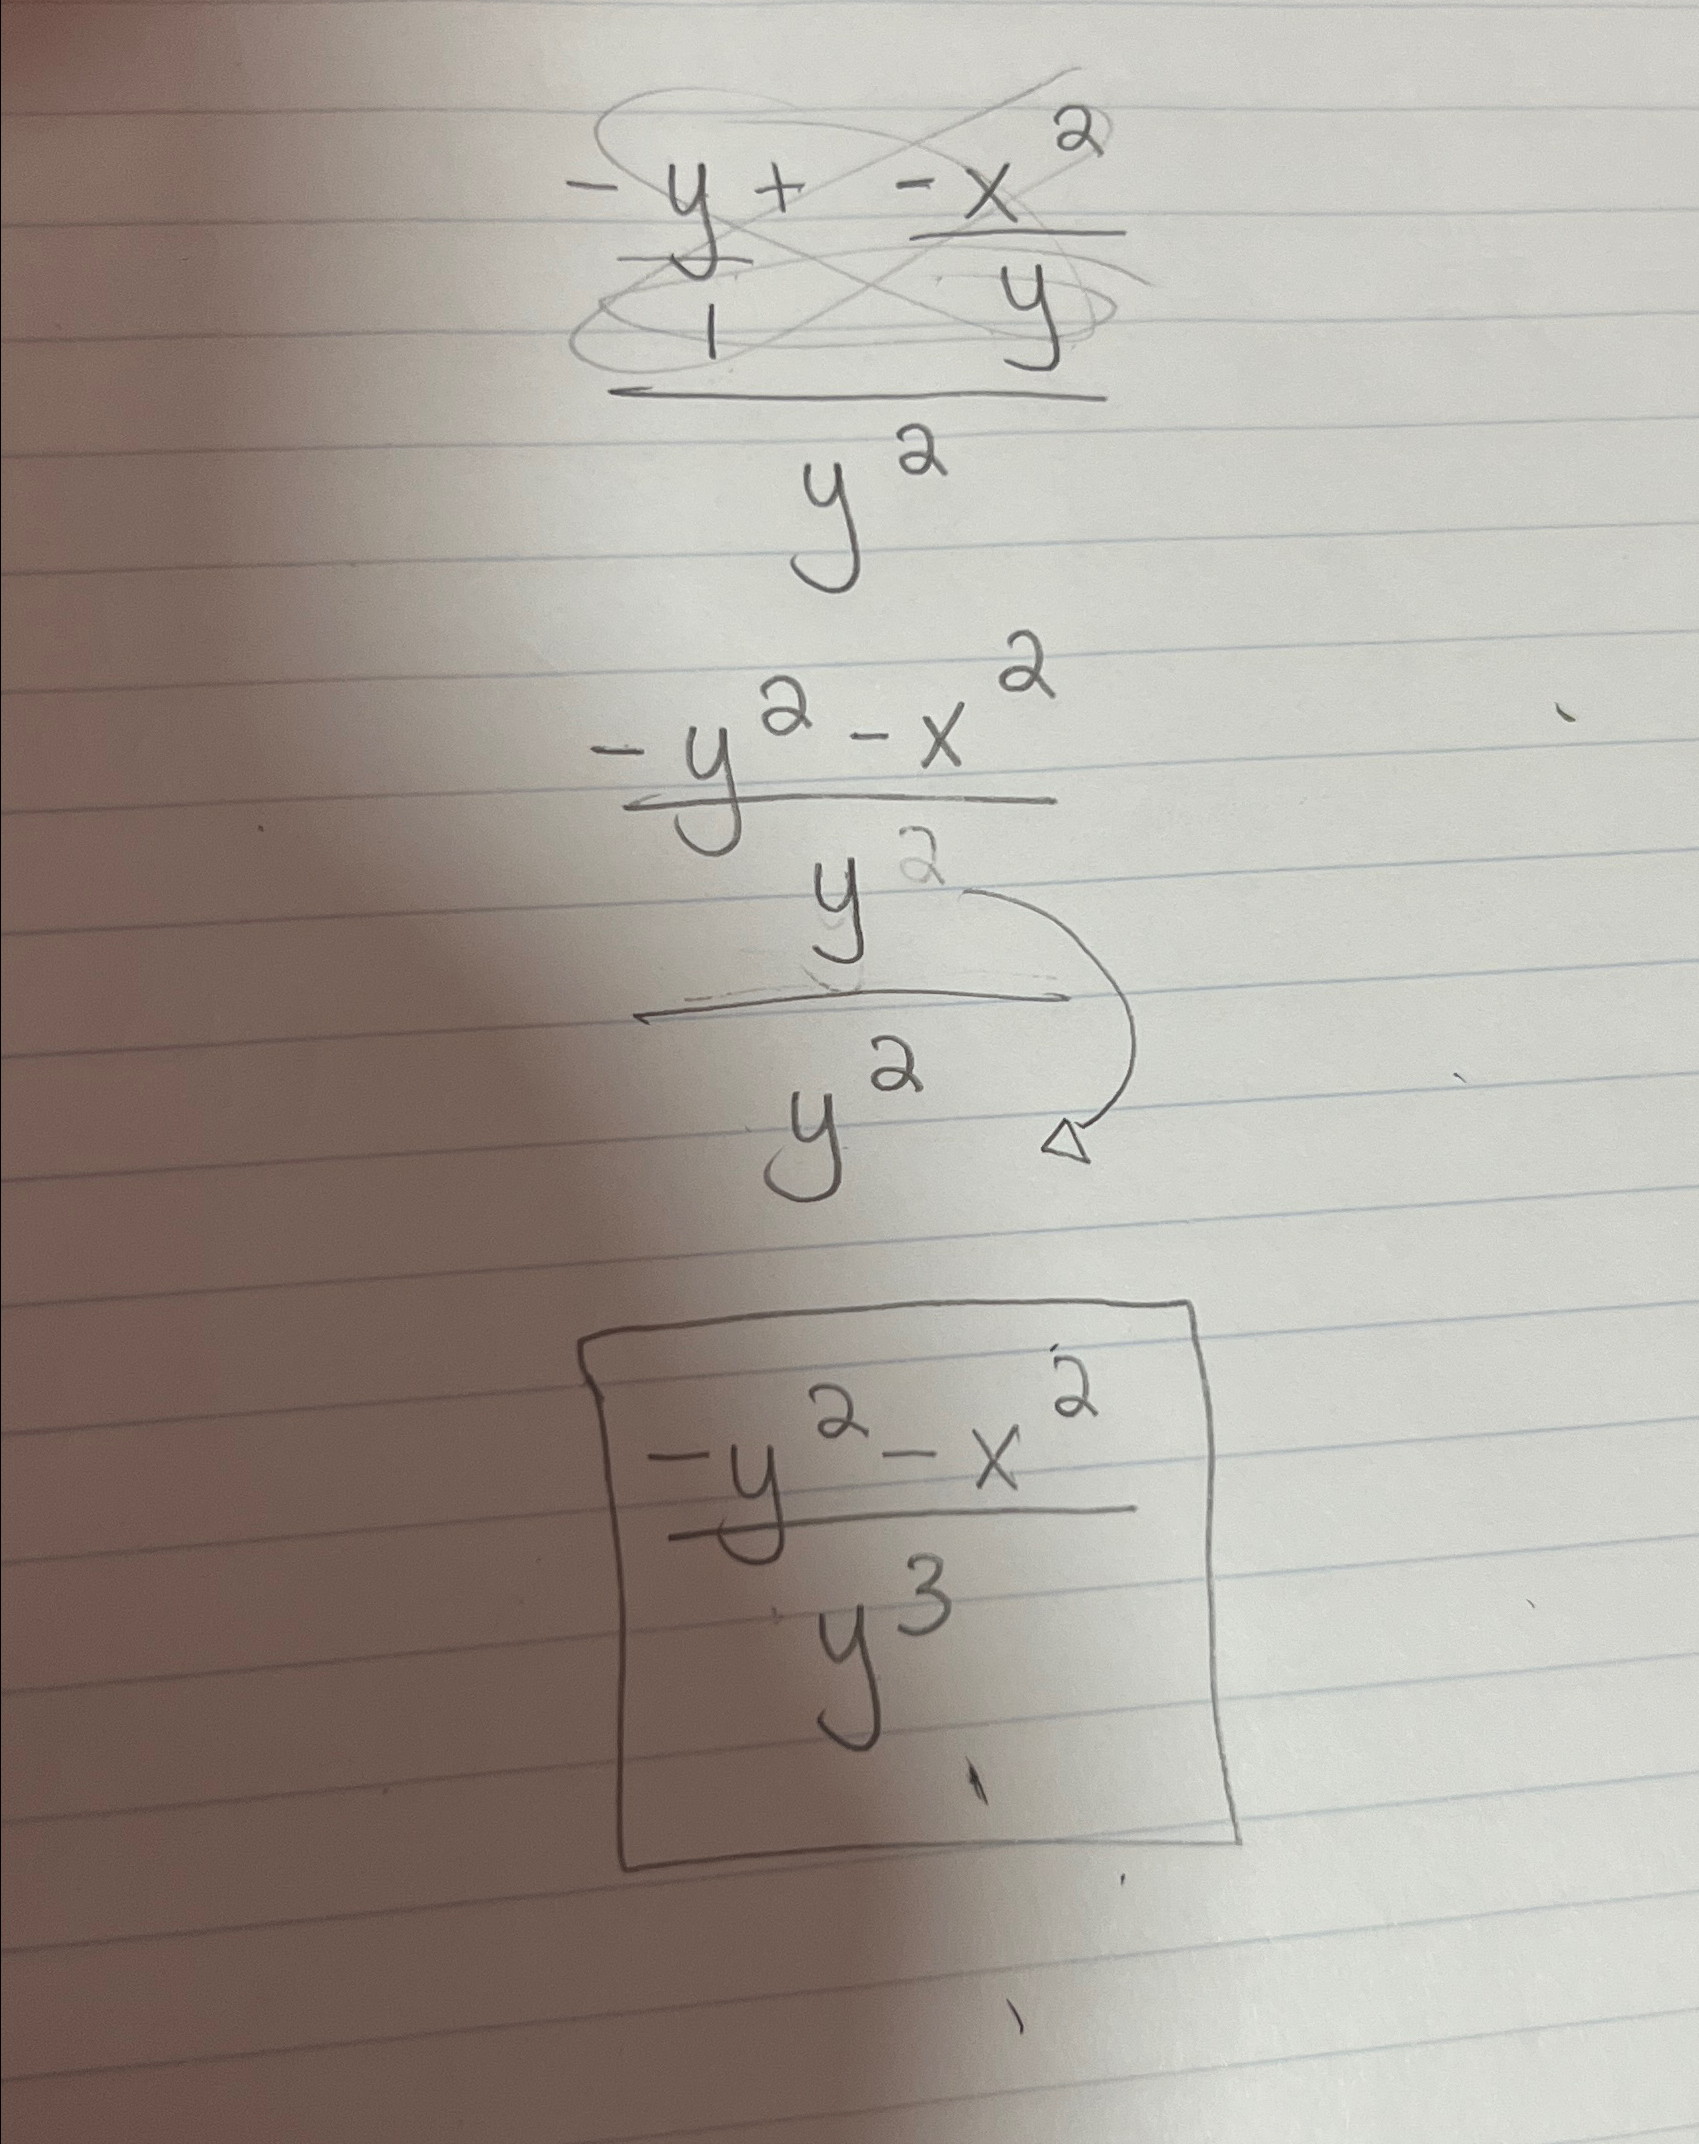 - y + - x²
1 y
y²
- y² - x²
y²
y²
- y² - x²
y³